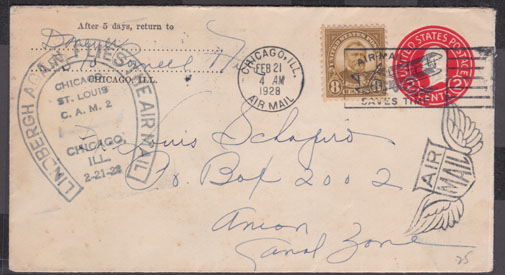 After 5 days, return to
CHICAGO, ILL.
LINDBERGH AGAIN FLIES THE AIR MAIL
CHICAGO
ST. LOUIS
C. A. M. 2
CHICAGO,
ILL.
2-21-28
CHICAGO, ILL.
FEB 21
4 AM
1928
AIR MAIL
8
AIR MAIL
SAVES TIME
UNITED STATES POSTAGE
2 CENTS 2
AIR
MAIL
Louis Schapiro
Po Box 2002
Ancon
Canal Zone
25